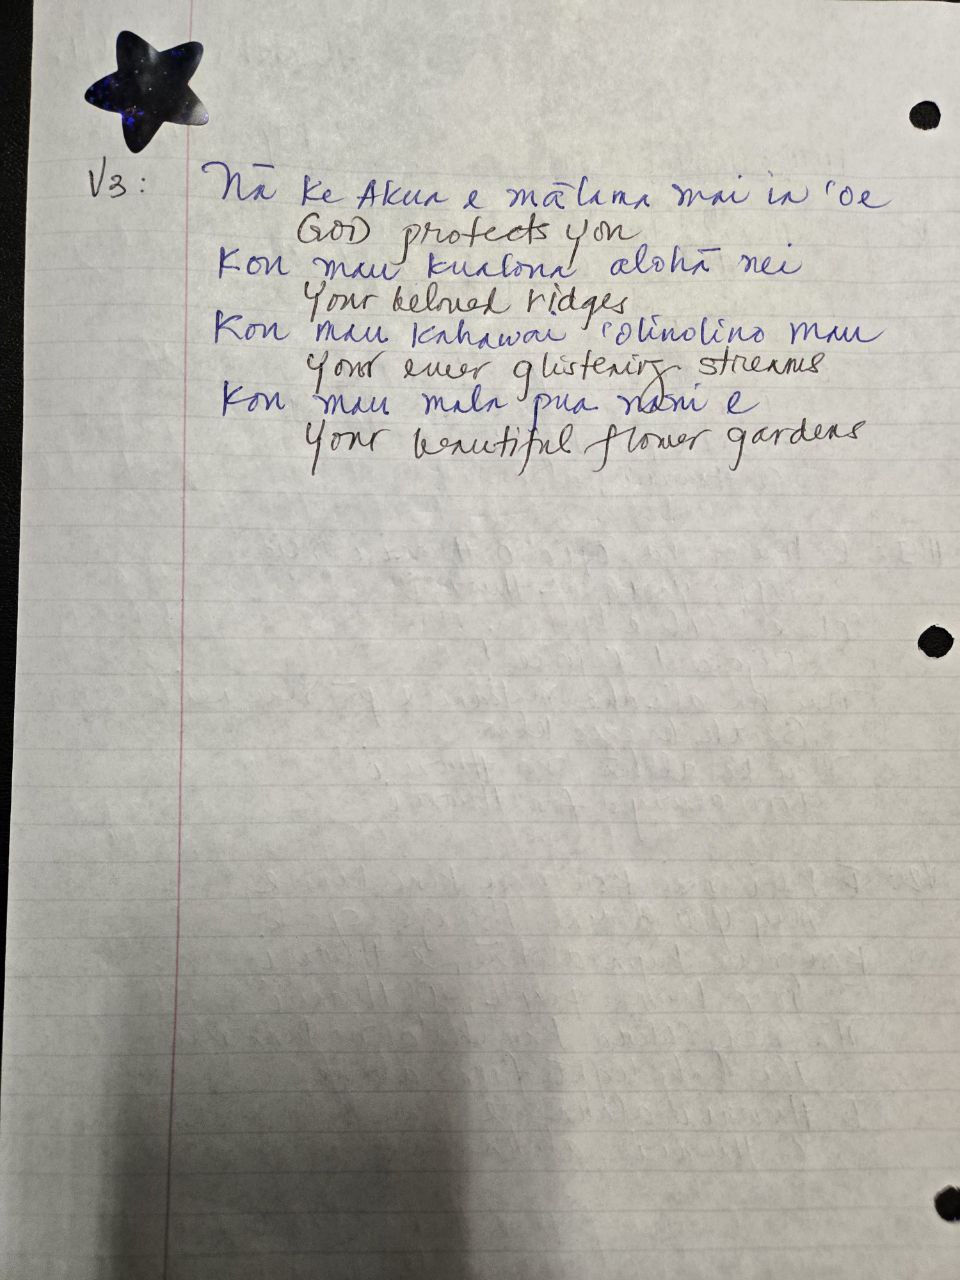 V3: Nā ke Akua e mālama mai ia ʻoe
GOD protects you
Kou mau kualona alohā nei
Your beloved ridges
Kou mau kahawai ʻōlinolino mau
Your ever glistening streams
Kou mau mala pua nani e
Your beautiful flower gardens